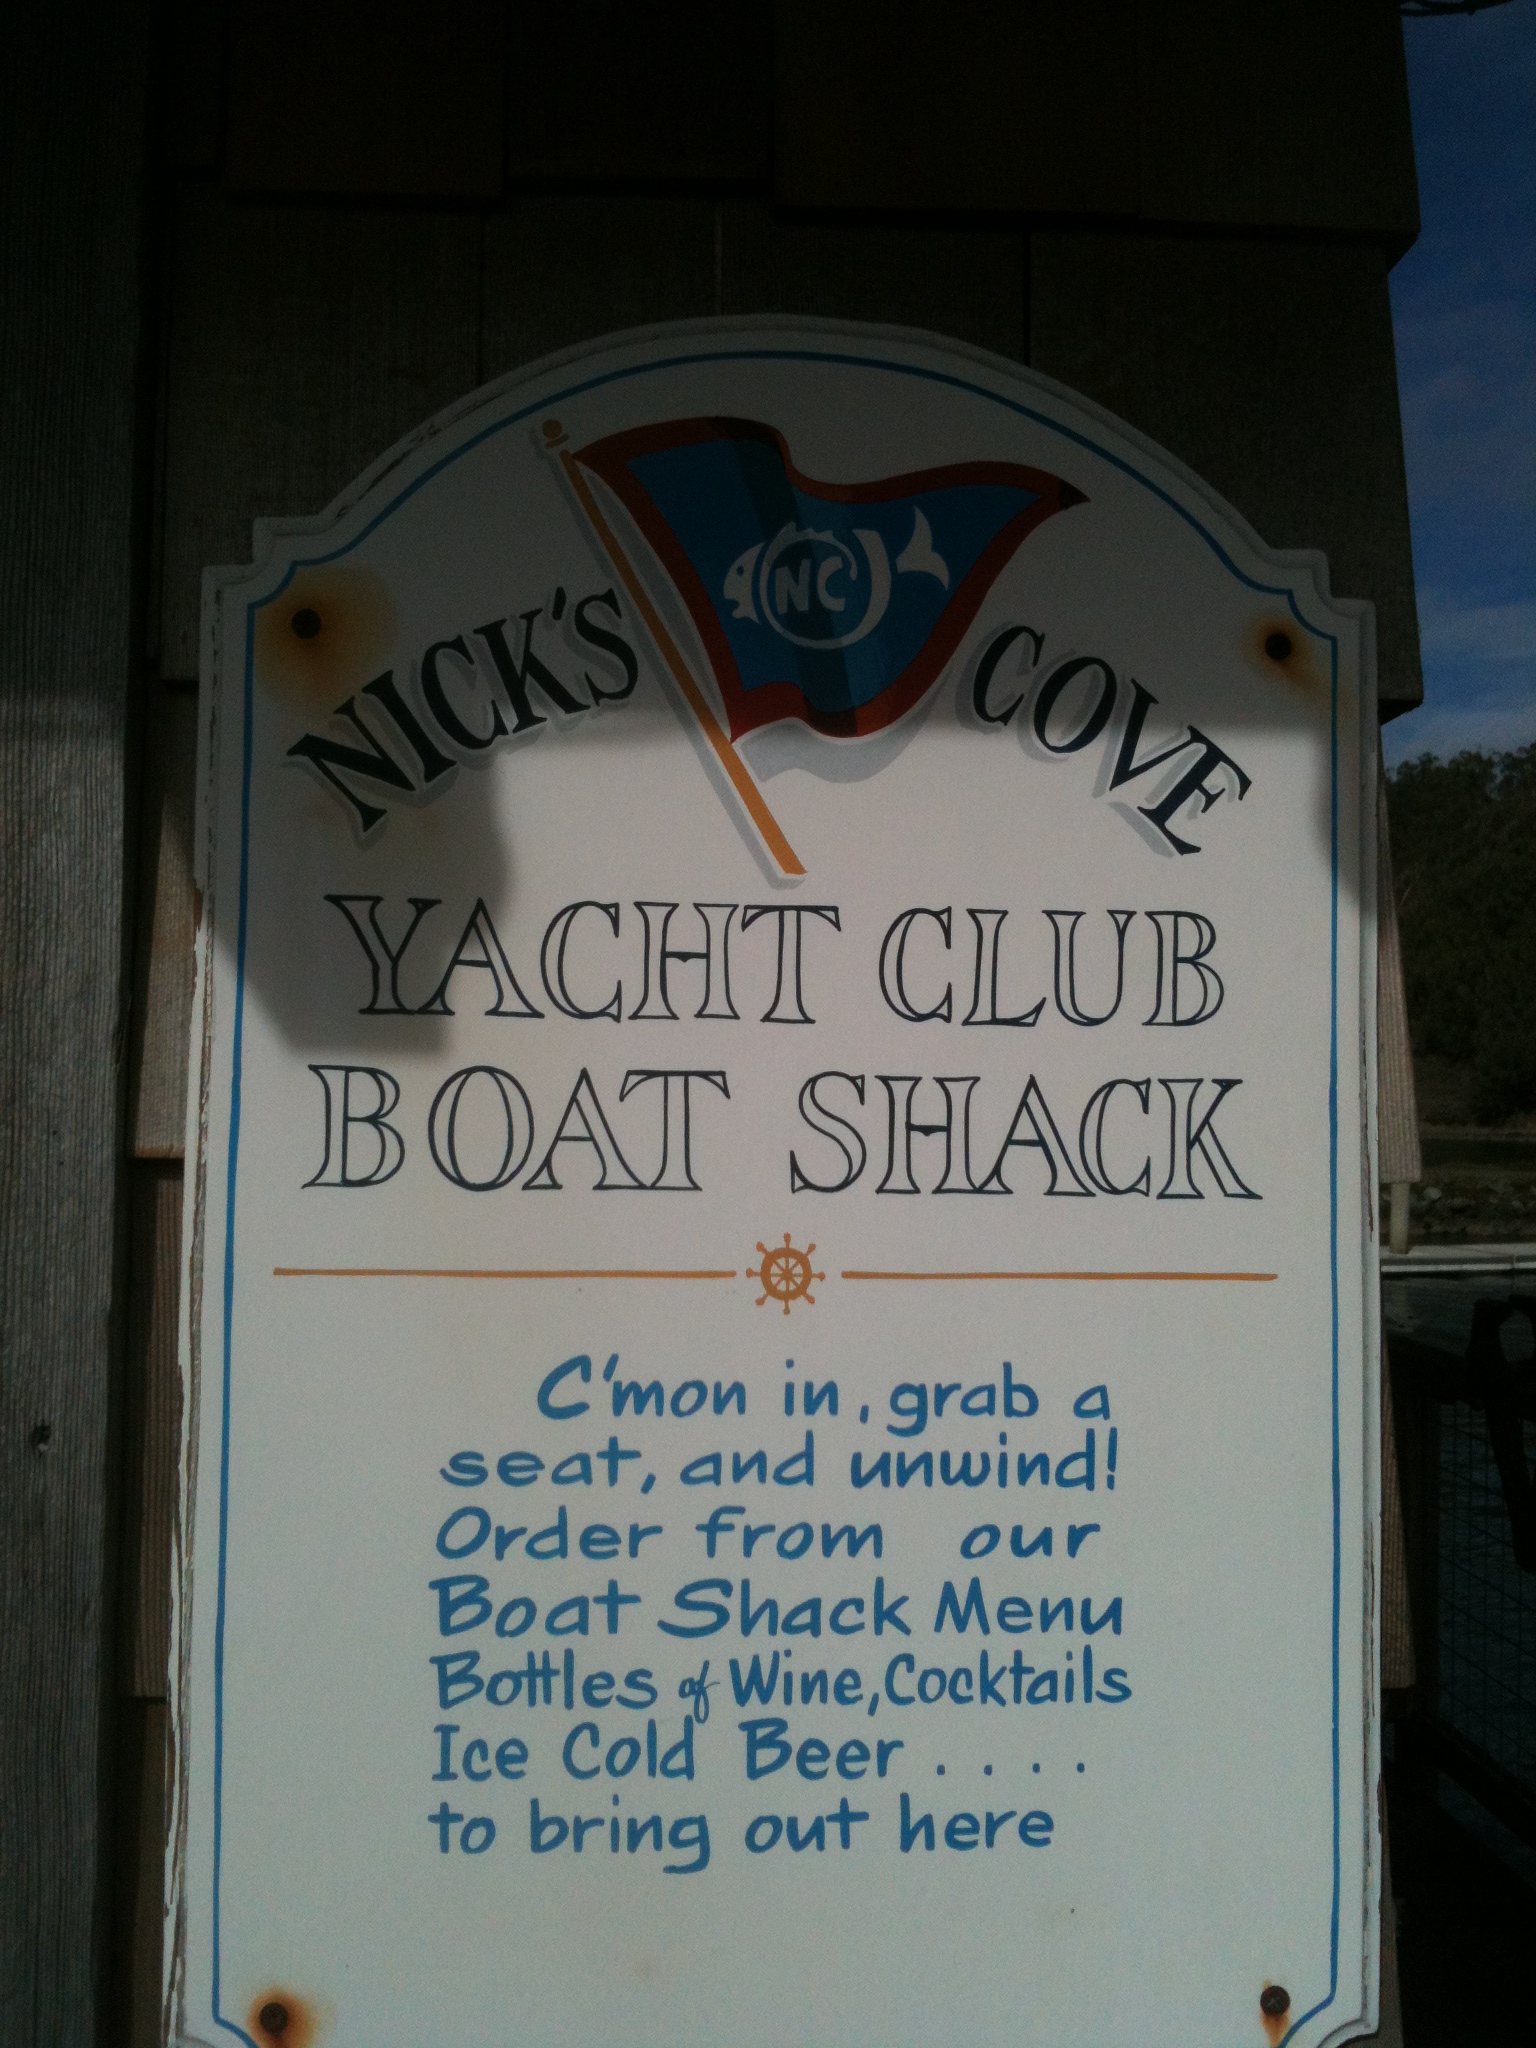 NC
NICK'S COVE
YACHT CLUB
BOAT SHACK
C'mon in, grab a
seat, and unwind!
Order from our
Boat Shack Menu
Bottles of Wine, Cocktails
Ice Cold Beer ....
to bring out here